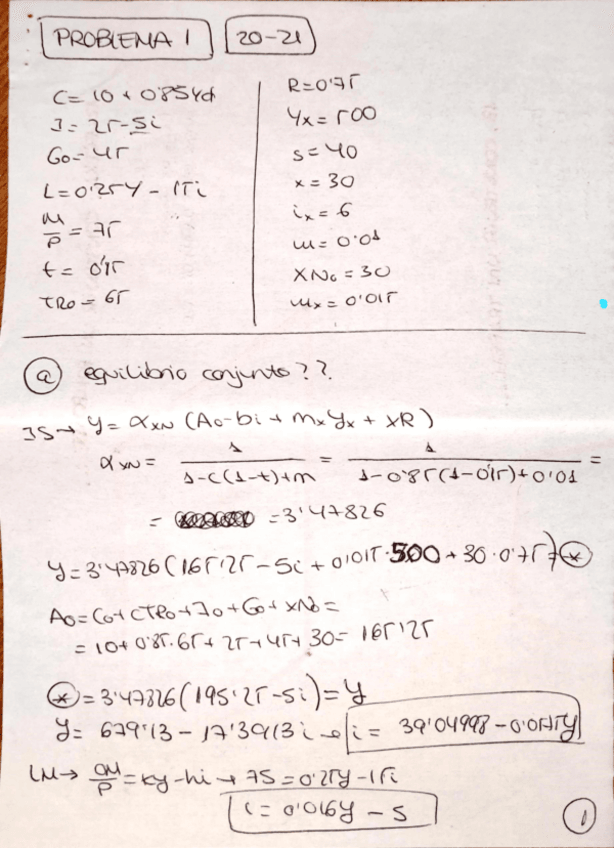 PROBLEMA 1 20-21
C= 10 + 0'85Yd
I= 25-5i
G0= 45
L= 0'25Y - 15i
M/P = 75
t= 0'15
TR0= 65
R=0'75
Yx= 500
s= 40
x= 30
ix= 6
m= 0'01
XN0 = 30
mx= 0'015
a equilibrio conjunto??
IS→ Y= αXN (A0-bi + mxYx + xR)
αXN = 1/(1-c(1-t)+m) = 1/(1-0'85(1-0'15)+0'01) =
= 3'47826
Y= 3'47826 (165'25 - 5i + 0'015·500 + 30·0'75) = *
A0= C0+cTR0+I0+G0+XN0=
= 10+0'85·65+25+45+30= 165'25
* = 3'47826 (195'25-5i)= Y
Y= 679'13 - 17'3913i → i= 39'04998 - 0'0575Y
LM→ M/P = ky-hi → 75 = 0'25y-15i
i= 0'016y - 5
1